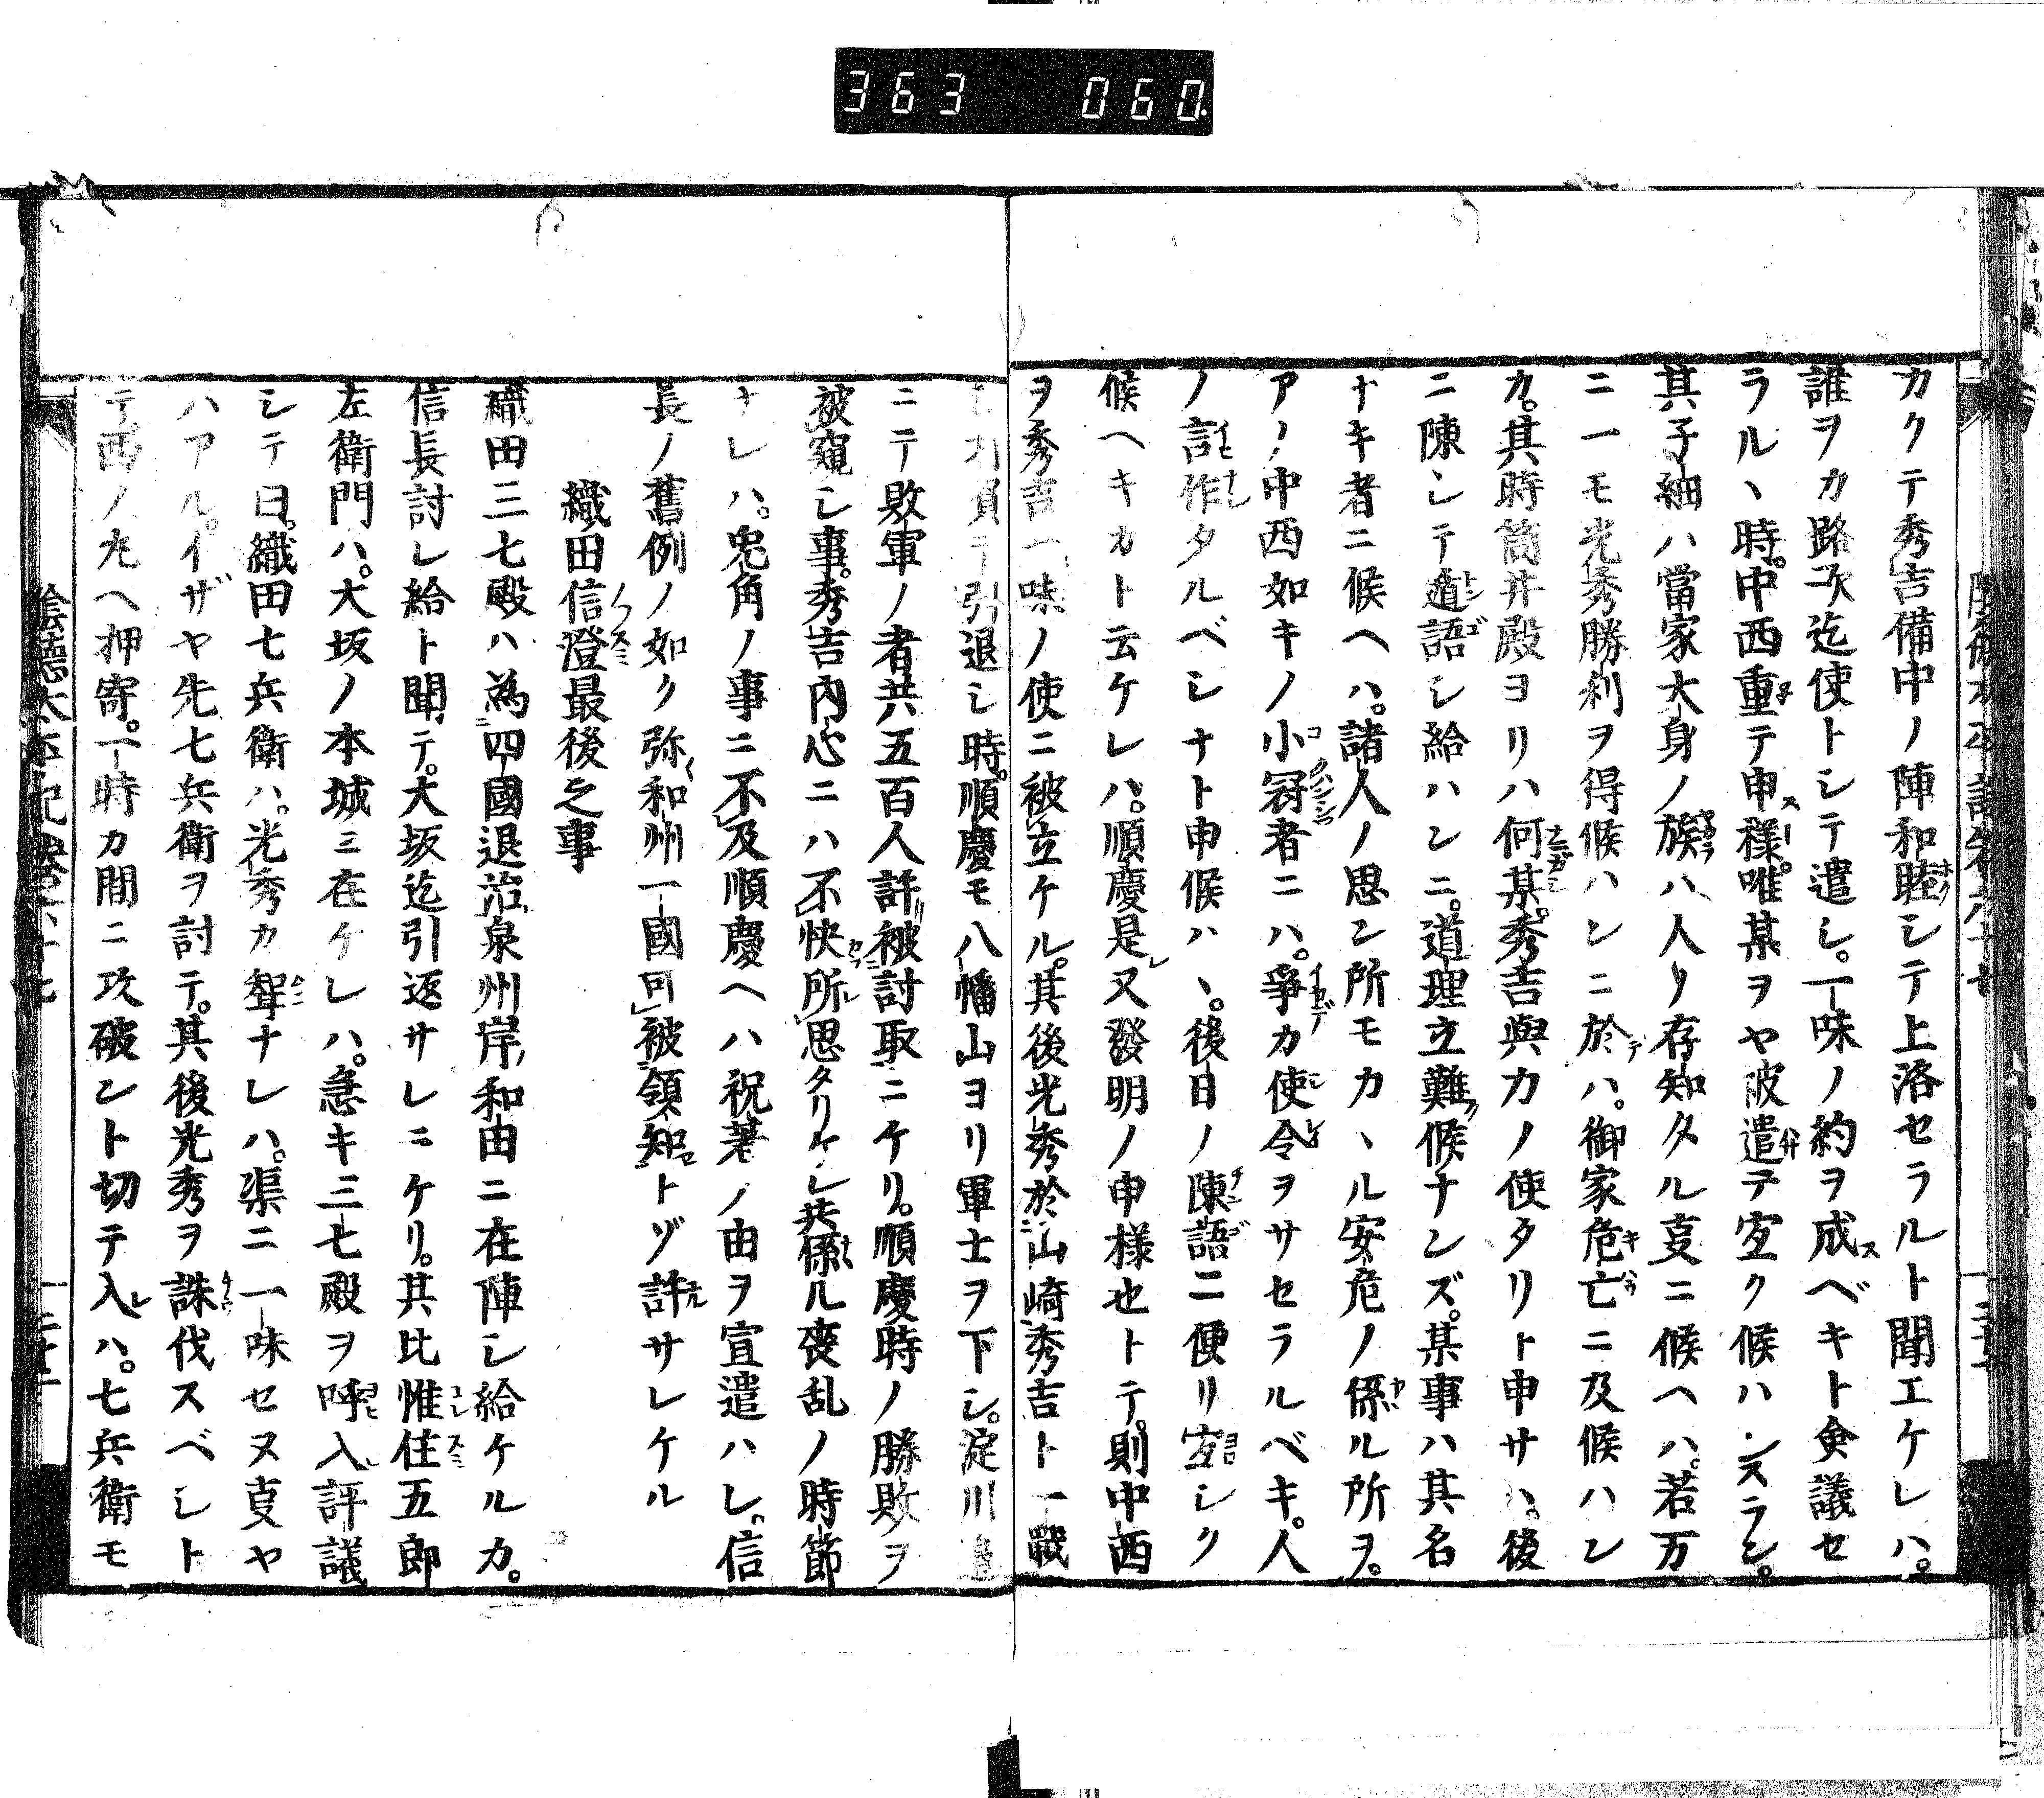 363 060.
カクテ秀吉備中ノ陣和睦シテ上洛セラルト聞エケレハ。
誰ヲカ路次迄使トシテ遣シ。一味ノ約ヲ成スベキト僉議セ
ラルヽ時。中西重テ申様。唯某ヲヤ被遣テ宜ク候ハンスラン。
其子細ハ當家大身ノ族ハ人リ存知タル叓ニ候ヘハ。若万
ニ一モ光秀勝利ヲ得候ハンニ於テハ。御家危亡ニ及候ハン
カ。其時筒井殿ヨリハ何某。秀吉與力ノ使タリト申サハ。後
ニ陳シテ遁語シ給ハンニ。道理立難候ナンズ。某事ハ其名
ナキ者ニ候ヘハ。諸人ノ思ン所モカヽル安危ノ係ル所ヲ。
アノ中西如キノ小冠者ニハ。爭カ使令ヲサセラルベキ。人
ノ言作タルベシナト申候ハヽ。後日ノ陳語ニ便リ宜シク
候ヘキカト云ケレハ。順慶是又發明ノ申様也トテ。則中西
ヲ秀吉一味ノ使ニ被立ケル。其後光秀於山崎秀吉ト一戰
引退シ時。順慶モ八幡山ヨリ軍士ヲ下シ。淀川邊
ニテ敗軍ノ者共五百人許被討取ニケリ。順慶時ノ勝敗ヲ
被窺シ事。秀吉内心ニハ不快所思タリケレ共係ル喪乱ノ時節
ナレハ。兎角ノ事ニ不及順慶ヘハ祝著ノ由ヲ宣遣ハシ。信
長ノ舊例ノ如ク弥和州一國可被領知トゾ許サレケル
織田信澄最後之事
織田三七殿ハ爲四國退治泉州岸和田ニ在陣シ給ケルカ。
信長討レ給ト聞テ。大坂迄引返サレニケリ。其比惟住五郎
左衛門ハ。大坂ノ本城ニ在ケレハ。急キ三七殿ヲ呼入評議
シテ曰。織田七兵衛ハ。光秀カ聟ナレハ。渠ニ一味セヌ叓ヤ
ハアル。イザヤ先七兵衛ヲ討テ。其後光秀ヲ誅伐スベシト
テ西ノ丸ヘ押寄。一時カ間ニ攻破ント切テ入レハ。七兵衛モ